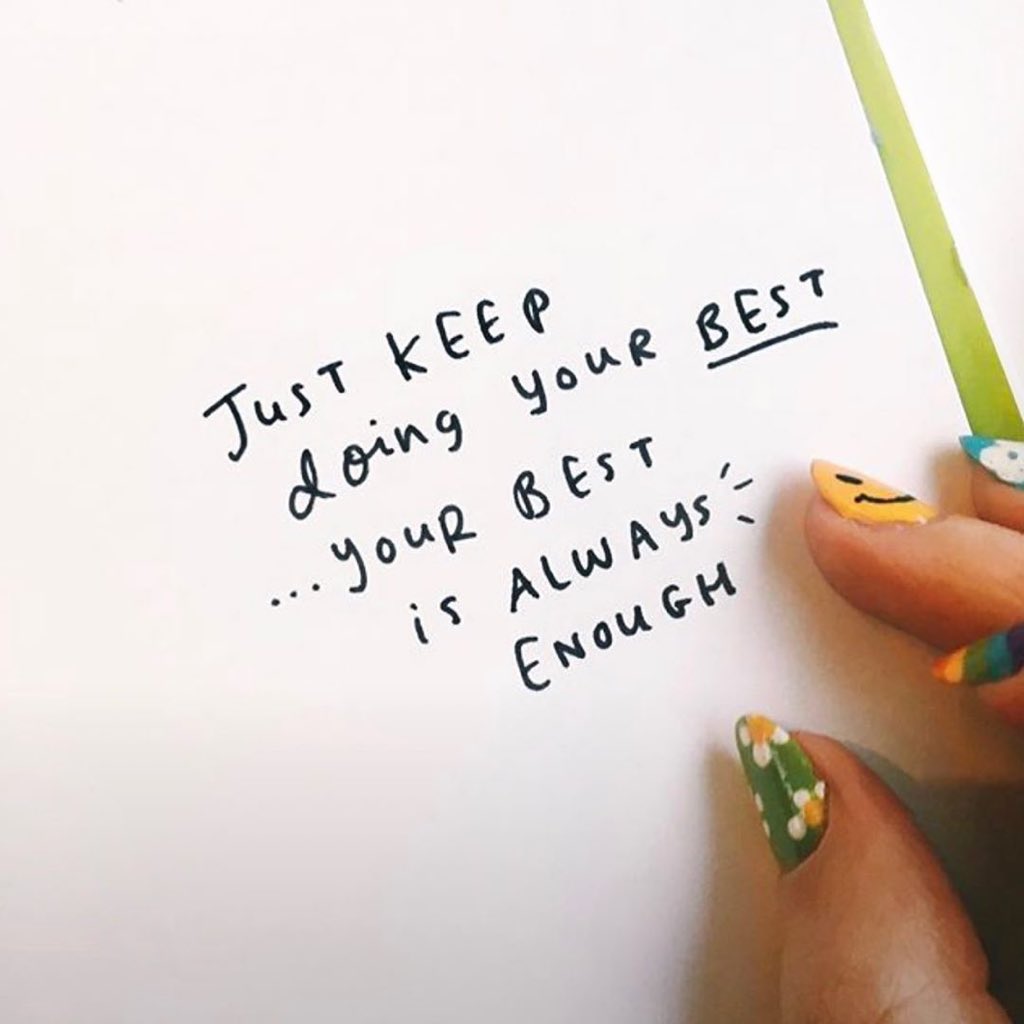 JusT KEEP
doing youR BEST
...youR BEST
is ALWAys
ENOUGH